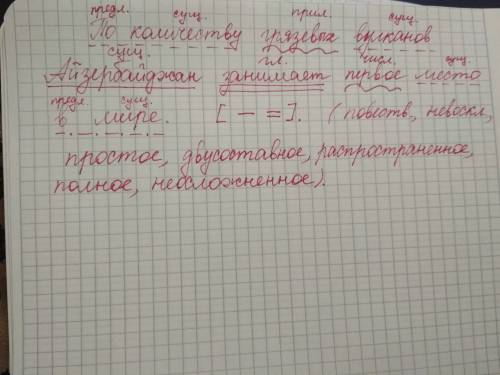 предл. сущ. прил. сущ.
По количеству грязевых вулканов
сущ. гл. числ. сущ.
Айзербайджан занимает первое место
предл. сущ.
в мире. [ — = ]. (повеств., невоскл.,
простое, двусоставное, распространенное,
полное, неосложненное).